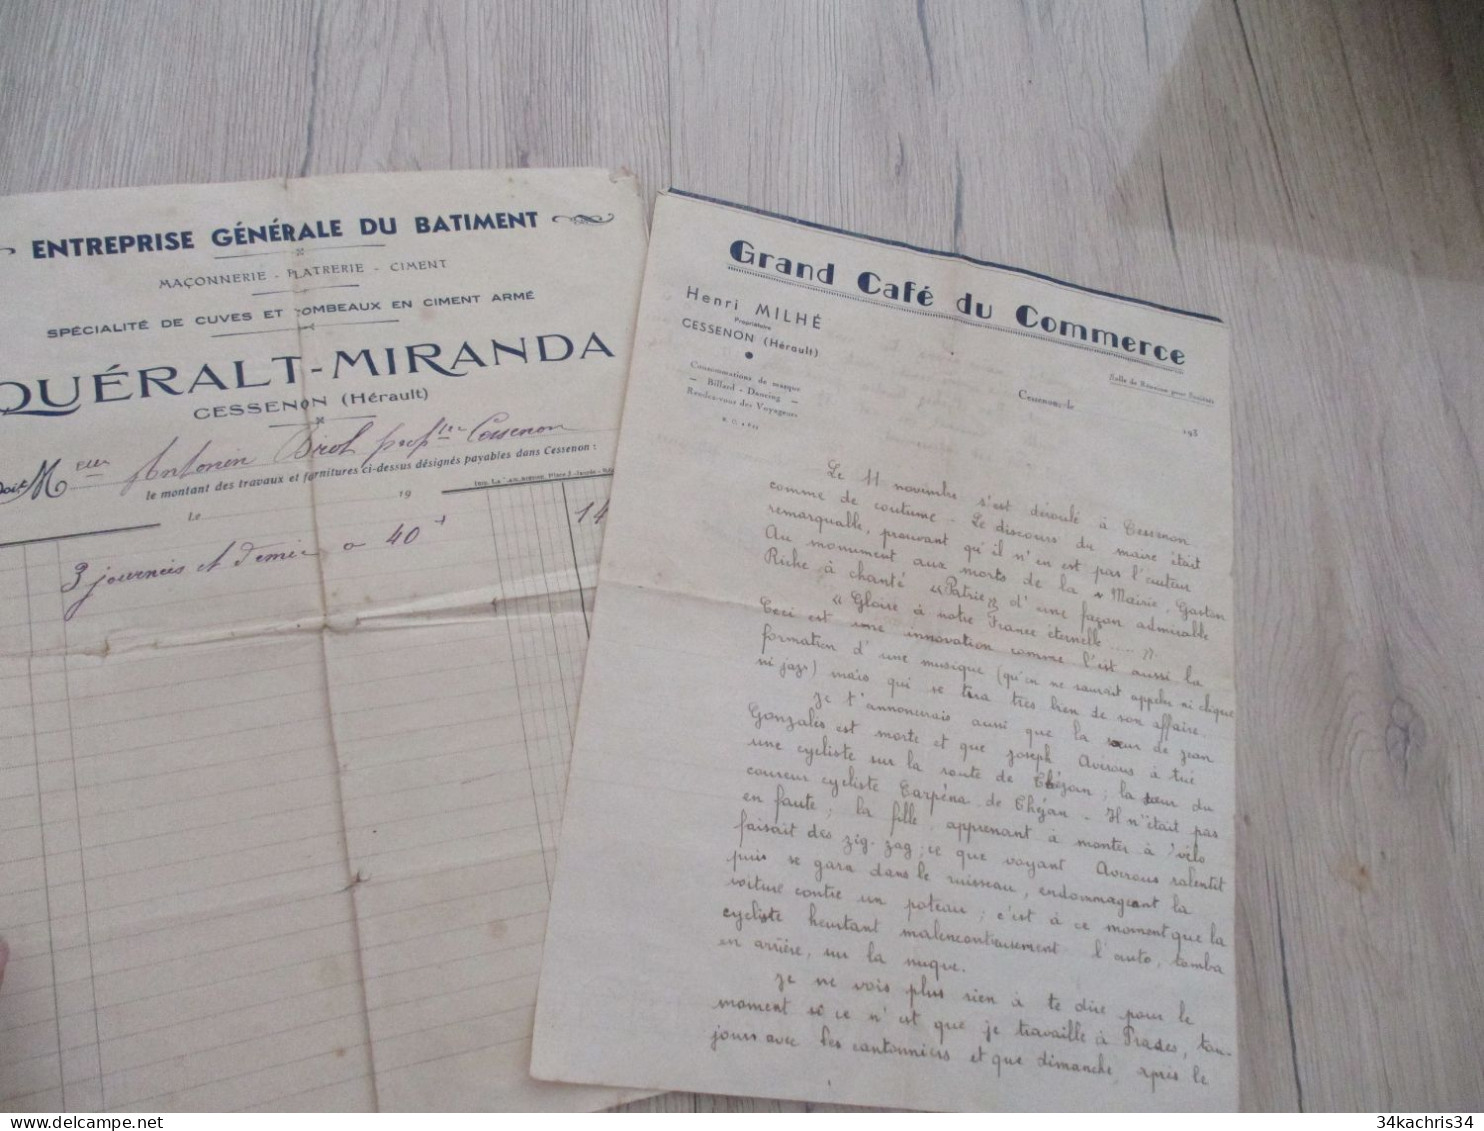 ENTREPRISE GÉNÉRALE DU BATIMENT
MAÇONNERIE - PLATRERIE - CIMENT
SPÉCIALITÉ DE CUVES ET TOMBEAUX EN CIMENT ARMÉ
QUÉRALT-MIRANDA
CESSENON (Hérault)
Doit Meur Antonin Pirot propre Cessenon
le montant des travaux et fornitures ci-dessus désignés payables dans Cessenon :
Le 19
3 journées et demie a 40 14
Grand Café du Commerce
Henri MILHÉ
Propriétaire
CESSENON (Hérault)
Consommations de marque
— Billard - Dancing —
Rendez-vous des Voyageurs
Salle de Réunion pour Sociétés
Cessenon, le 193
Le 11 novembre s'est déroulé à Cessenon
comme de coutume. Le discours du maire était
remarquable, prouvant qu'il n'en est pas l'auteur
Au monument aux morts de la Mairie, Gaston
Riche à chanté "Patrie" d'une façon admirable
"Gloire à notre France éternelle ....."
Ceci est une innovation comme l'est aussi la
formation d'une musique (qu'on ne saurait appeler ni clique
ni jazz) mais qui se tira très bien de son affaire.
Je t'annoncerais aussi que la sœur de Jean
Gonzalès est morte et que Joseph Avérous à tué
une cycliste sur la route de Théjan ; la sœur du
coureur cycliste Tarpéna de Théjan - Il n'était pas
en faute ; la fille, apprenant à monter à vélo
faisait des zig-zag ; ce que voyant Averous ralentit
puis se gara dans le ruisseau, endommageant la
voiture contre un poteau ; c'est à ce moment que la
cycliste heurtant malencontreusement l'auto, tomba
en arrière, sur la nuque.
Je ne vois plus rien à te dire pour le
moment si ce n'est que je travaille à Prades, tou-
jours avec les cantonniers et que dimanche, après le
34kachris34